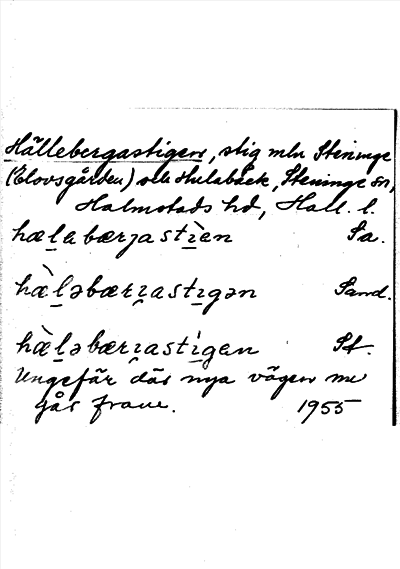 Hällebergastigen, stig mln Steninge
(Elovsgården) och Hulabäck, Steninge sn,
Halmstads hd, Hall. l.
hælebærjastìen Sa.
hæ̀ləbærɪastɪgən Sand.
hæ̀ləbærɪastɪ̀gen St.
Ungefär där nya vägen nu
går fram. 1955